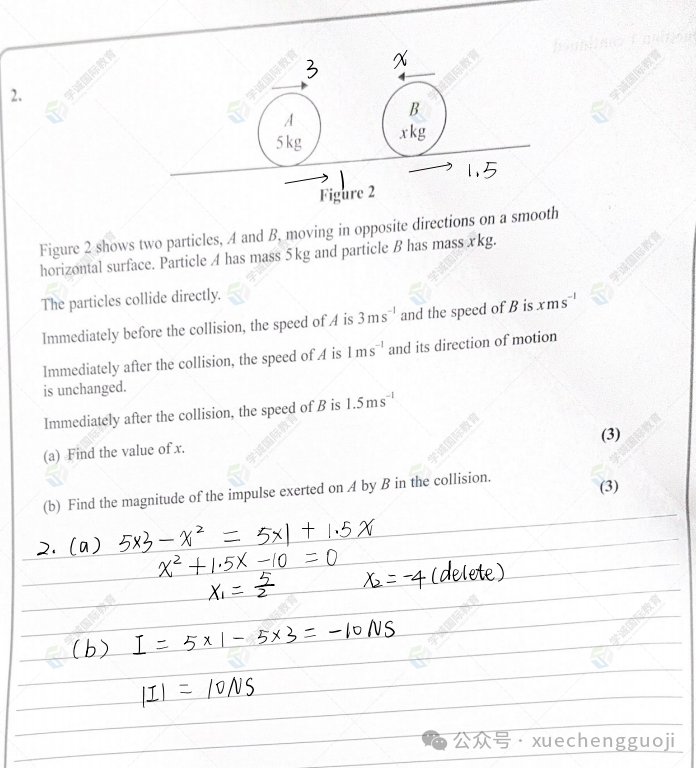 2.
3
x
A
5 kg
B
x kg
1
1.5
Figure 2
Figure 2 shows two particles, A and B, moving in opposite directions on a smooth
horizontal surface. Particle A has mass 5 kg and particle B has mass x kg.
The particles collide directly.
Immediately before the collision, the speed of A is 3 m s⁻¹ and the speed of B is x m s⁻¹
Immediately after the collision, the speed of A is 1 m s⁻¹ and its direction of motion
is unchanged.
Immediately after the collision, the speed of B is 1.5 m s⁻¹
(a) Find the value of x.
(3)
(b) Find the magnitude of the impulse exerted on A by B in the collision.
(3)
2. (a) 5×3 − x² = 5×1 + 1.5x
x² + 1.5x − 10 = 0
x₁ = 5/2 x₂ = −4 (delete)
(b) I = 5×1 − 5×3 = −10NS
|I| = 10NS
学诚国际教育
公众号 · xuechengguoji